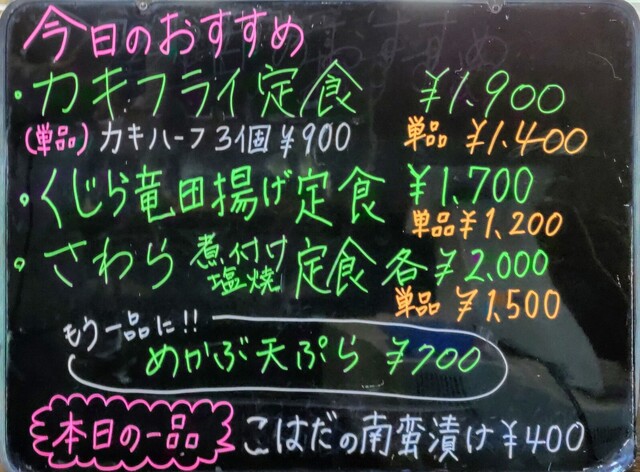 今日のおすすめ
・カキフライ定食 ¥1,900
(単品) カキハーフ 3個 ¥900 単品 ¥1,400
・くじら竜田揚げ定食 ¥1,700
単品 ¥1,200
・さわら 煮付け 塩焼 定食 各¥2,000
単品 ¥1,500
もう一品に!!
めかぶ天ぷら ¥700
本日の一品 こはだの南蛮漬け ¥400